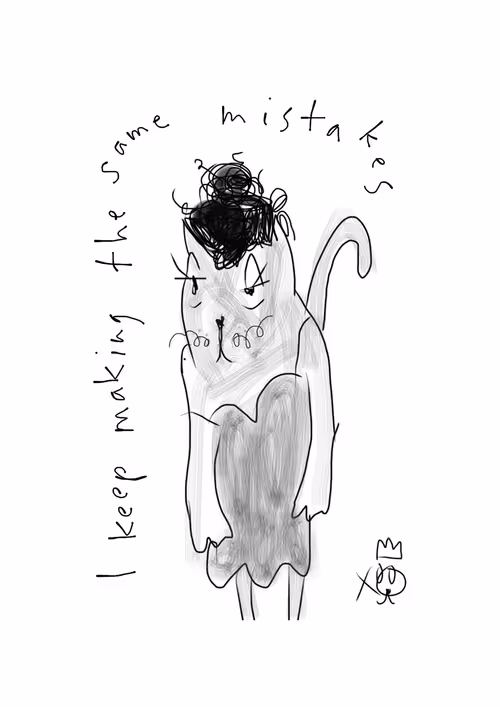 I keep making the same mistakes